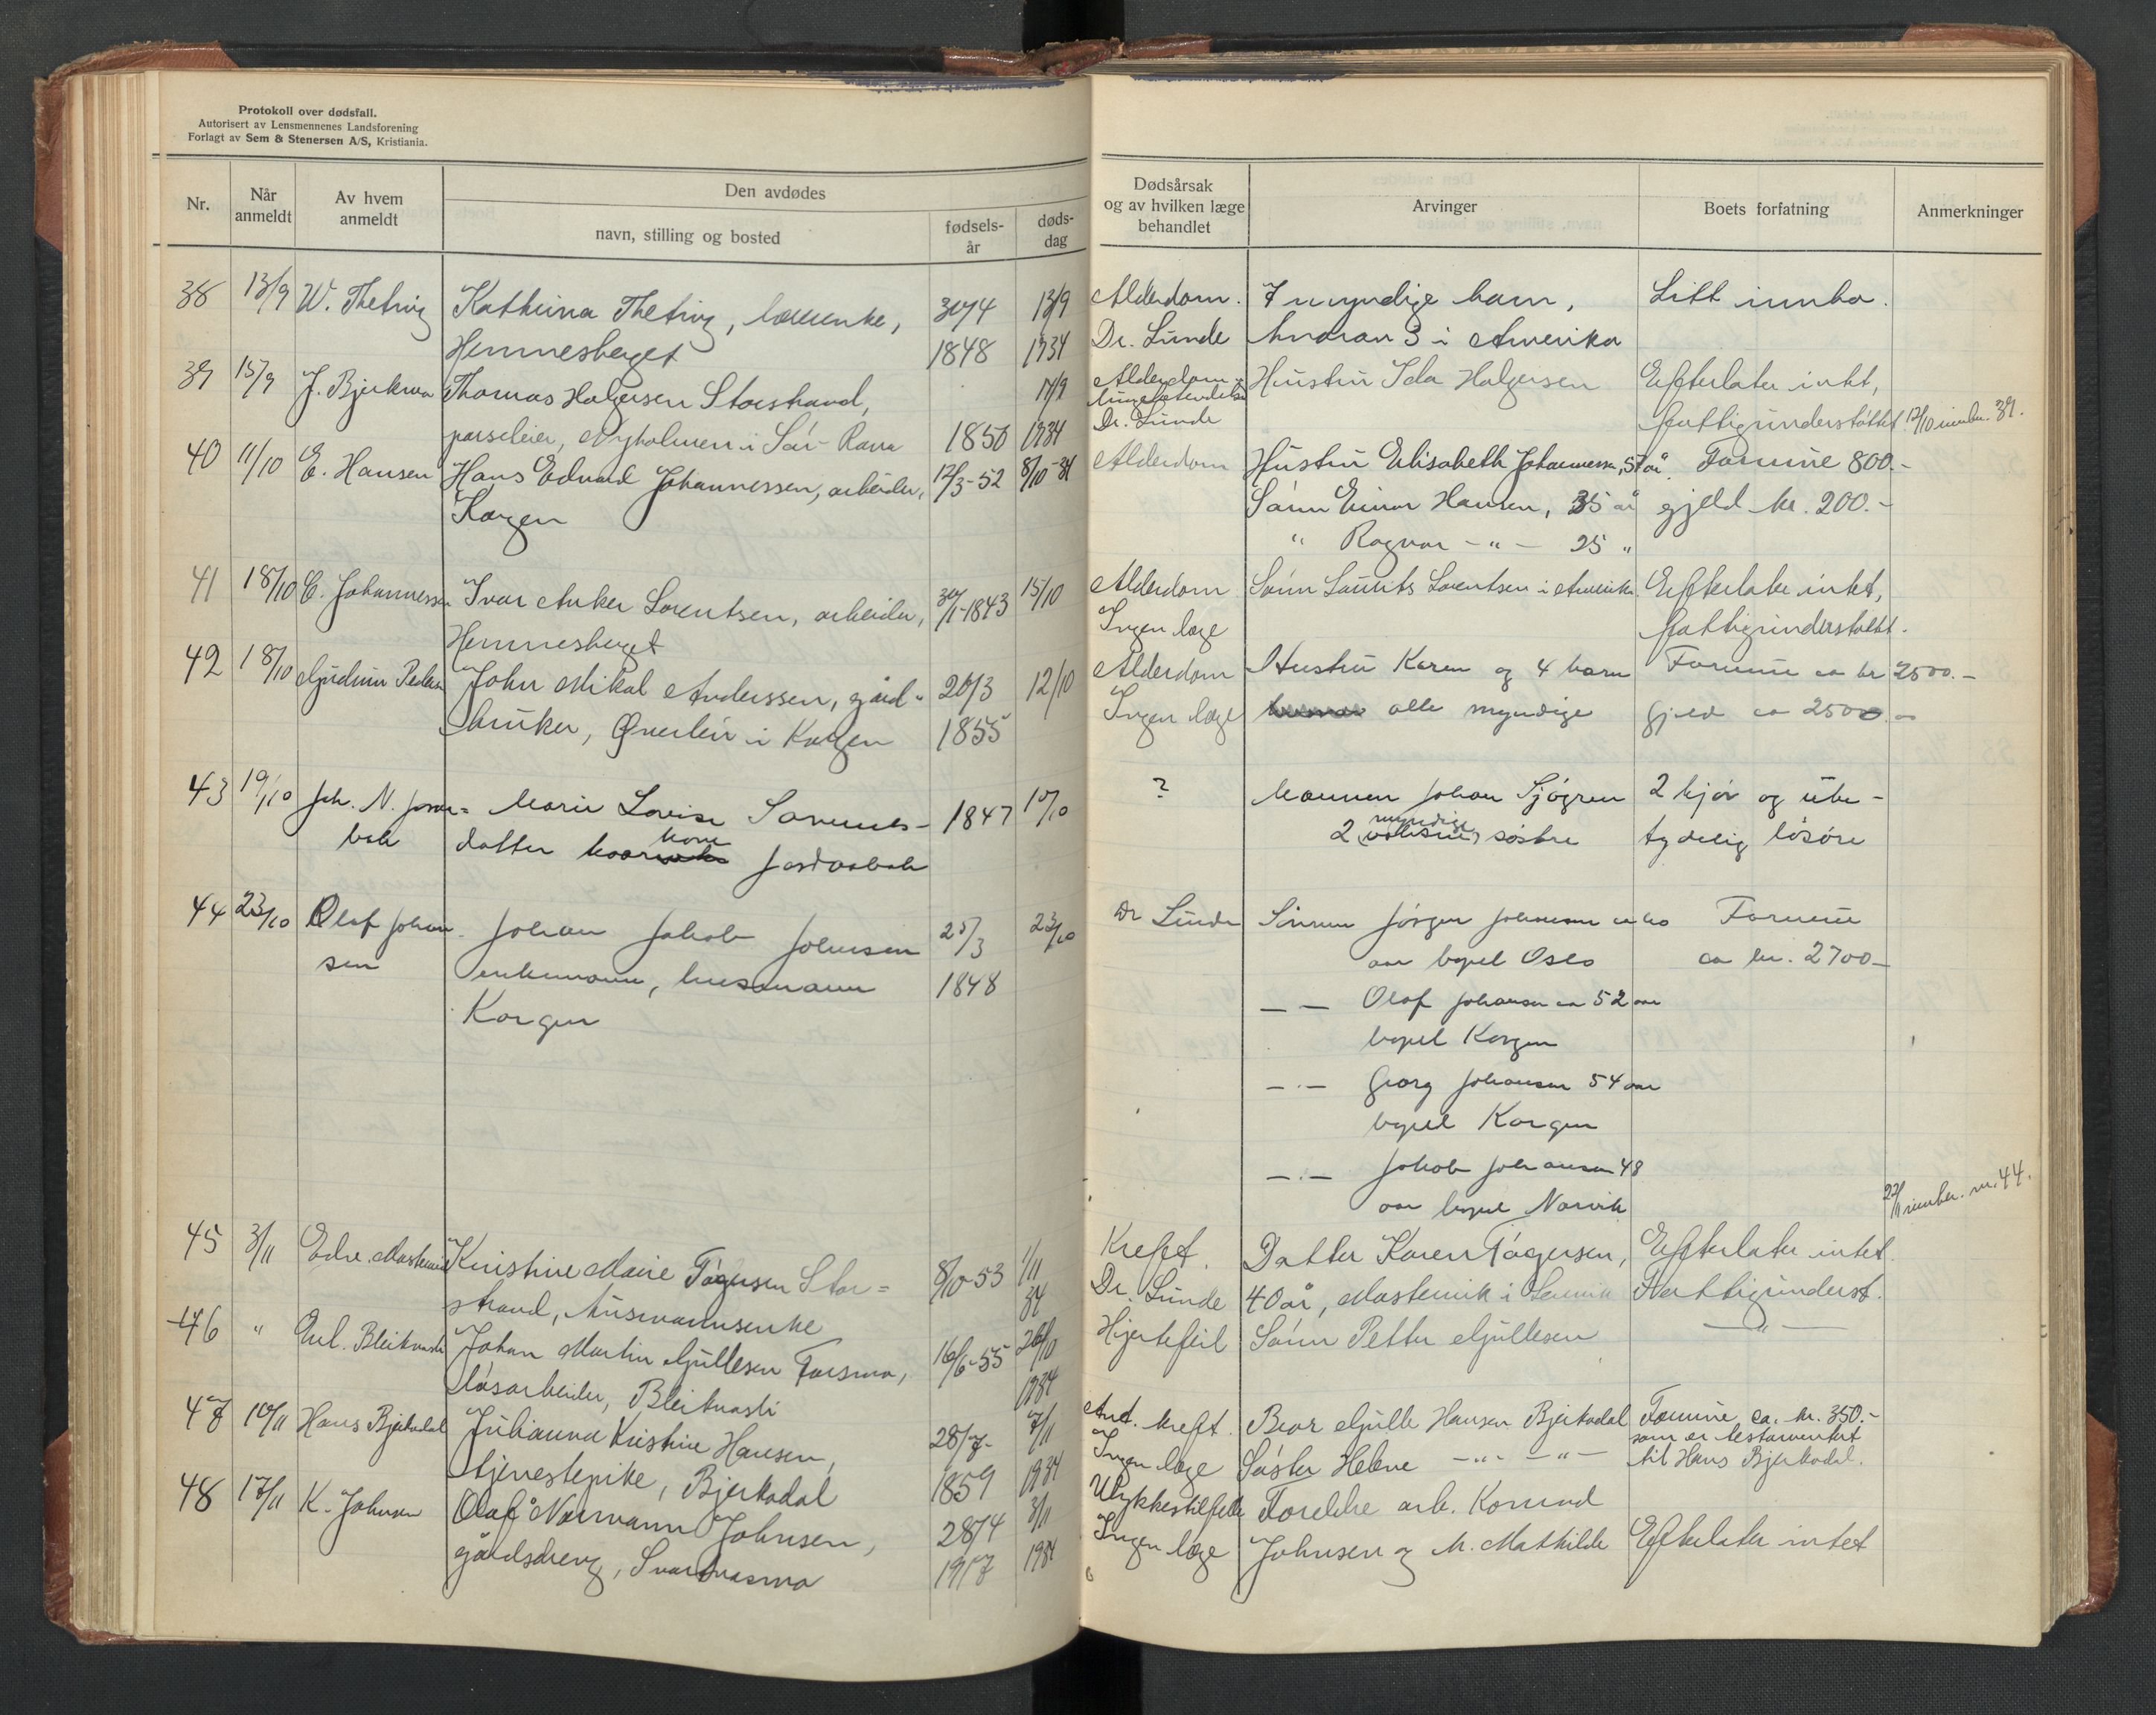 Protokoll over dødsfall.
Autorisert av Lensmennenes Landsforening
Forlagt av Sem & Stenersen A/S, Kristiania.
Nr.
Når anmeldt
Av hvem anmeldt
Den avdødes
navn, stilling og bosted
fødsels-år
døds-dag
Dødsårsak og av hvilken læge behandlet
Arvinger
Boets forfatning
Anmerkninger
38 13/9 W. Thetwig Kathrina Thetwig, 30/4 13/9 Alderdom. 7 myndige barn, Litt innbo.
Hemnesberget 1848 1934 Dr. Lunde hvorav 3 i Amerika
39 15/9 J. Bjerkmo Thomas Holgersen Storstrand, 11/9 Alderdom - Hustru Ida Holgersen Efterlater intet,
parseleier, Nyholmen i Sør-Rana 1850 1934 Dr. Lunde fattigunderstøttet. 12/10 innber. 39.
40 11/10 E. Hansen Hans Edvard Johannessen, arbeider, 12/3-52 8/10-34 Alderdom Hustru Elisabeth Johannessen, 57 år Formue 800.-
Korgen Sønn Einar Hansen, 35 år gjeld kr. 200.-
" Ragnar - " - 25 "
41 18/10 C. Johannessen Ivar Anker Lorentsen, arbeider, 30/1-1843 15/10 Alderdom Sønn Laurits Lorentsen i Amerika Efterlater intet,
Hemnesberget Ingen læge fattigunderstøttet.
42 18/10 Gjudmin Pedersen John Mikal Anderssen, gård- 20/3 12/10 Alderdom Hustru Karen og 4 barn Formue ca kr 2500.-
bruker, Øverleir i Korgen 1855 Ingen læge alle myndige Gjeld ca 2500.-
43 19/10 Joh. N. Jord= Marie Lovise Samuels- 1847 10/10 ? Mannen Johan Sjøgren 2 kjør og ube-
bak datter kone Jordbak 2 myndige søstre tydelig løsøre
44 23/10 Olaf Johan- Johan Jakob Johnsen 25/3 23/10 Dr Lunde Sønnen Jørgen Johansen ca 60 Formue
sen enkemann, husmann 1848 aar bopel Oslo ca kr. 2700-
Korgen — — Olaf Johansen ca 52 aar
bopel Korgen
— · — Georg Johansen 54 aar
bopel Korgen
— · — Jakob Johansen 48
aar bopel Narvik 22/11 innber. nr. 44.
45 3/11 Edv. Mastervik Kristine Marie Tøgersen Stor= 8/10-53 1/11 Kreft. Datter Karen Tøgersen, Efterlater intet.
strand, husmannsenke 34 Dr. Lunde 40 år, Mastervik i Leirvik Fattigunderst.
46 " Enl. Bleikvasli Johan Martin Gjullesen Forsmo, 16/6-55 26/10 Hjertefeil Sønn Petter Gjullesen — " —
løsarbeider, Bleikvasli 1934
47 10/11 Hans Bjerkadal Julianna Kristine Hansen, 28/7- 7/11 Ant. kreft. Bror Gjulle Hansen Bjerkadal Formue ca. kr. 350.-
som er testamentert
tjenestepike, Bjerkadal 1859 1934 Ingen læge Søster Helene — " — " — til Hans Bjerkadal.
48 17/11 K. Johnsen Olaf Normann Johnsen, 28/4 3/11 Ulykkestilfelle Foreldre arb. Konrad
gårdsdreng, Svartvasmo 1917 1934 Ingen læge Johnsen og M. Mathilde Efterlater intet